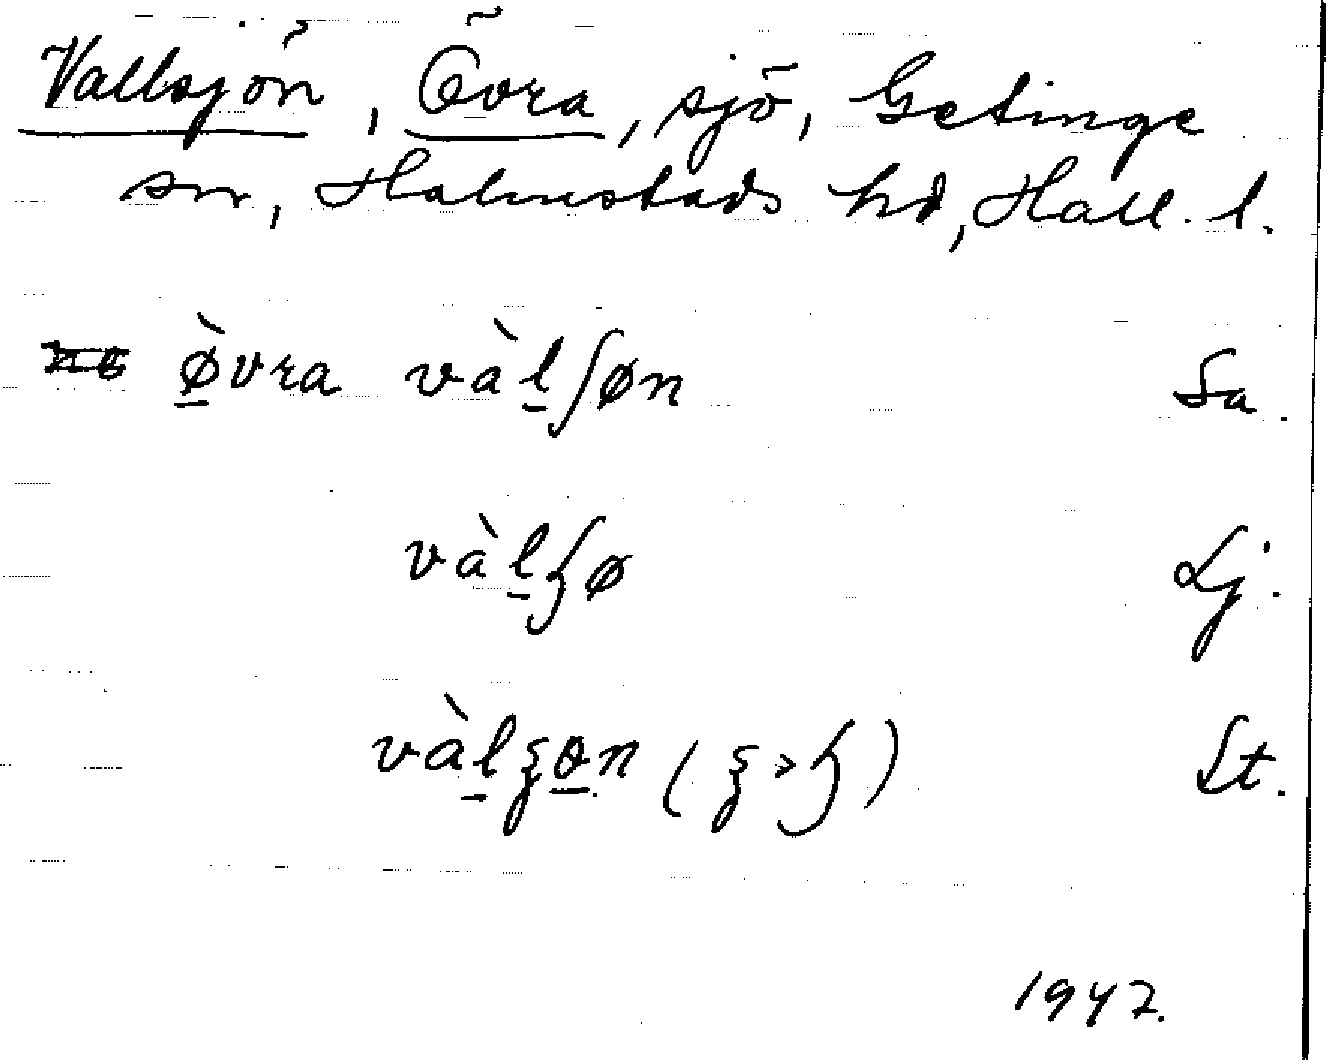 Vallsjön, Övra, sjö, Getinge
sn, Halmstads hd, Hall. l.
ø̱̀vra vàḻʃøn Sa.
vàḻ ø Lj.
vàḻ n St.
1942.